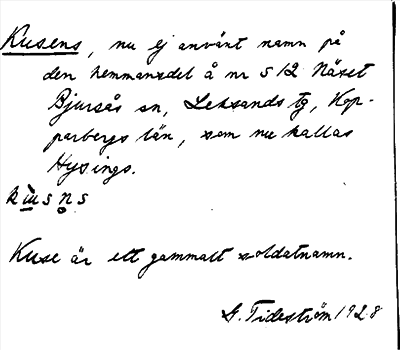 Kusens, nu ej använt namn på
den hemmansdel å nr 5 12 Näset
Bjursås sn, Leksands tg, Kop-
parbergs län, som nu kallas
Hysings.
kùsn̥s
Kuse är ett gammalt soldatnamn.
G. Tideström 1928